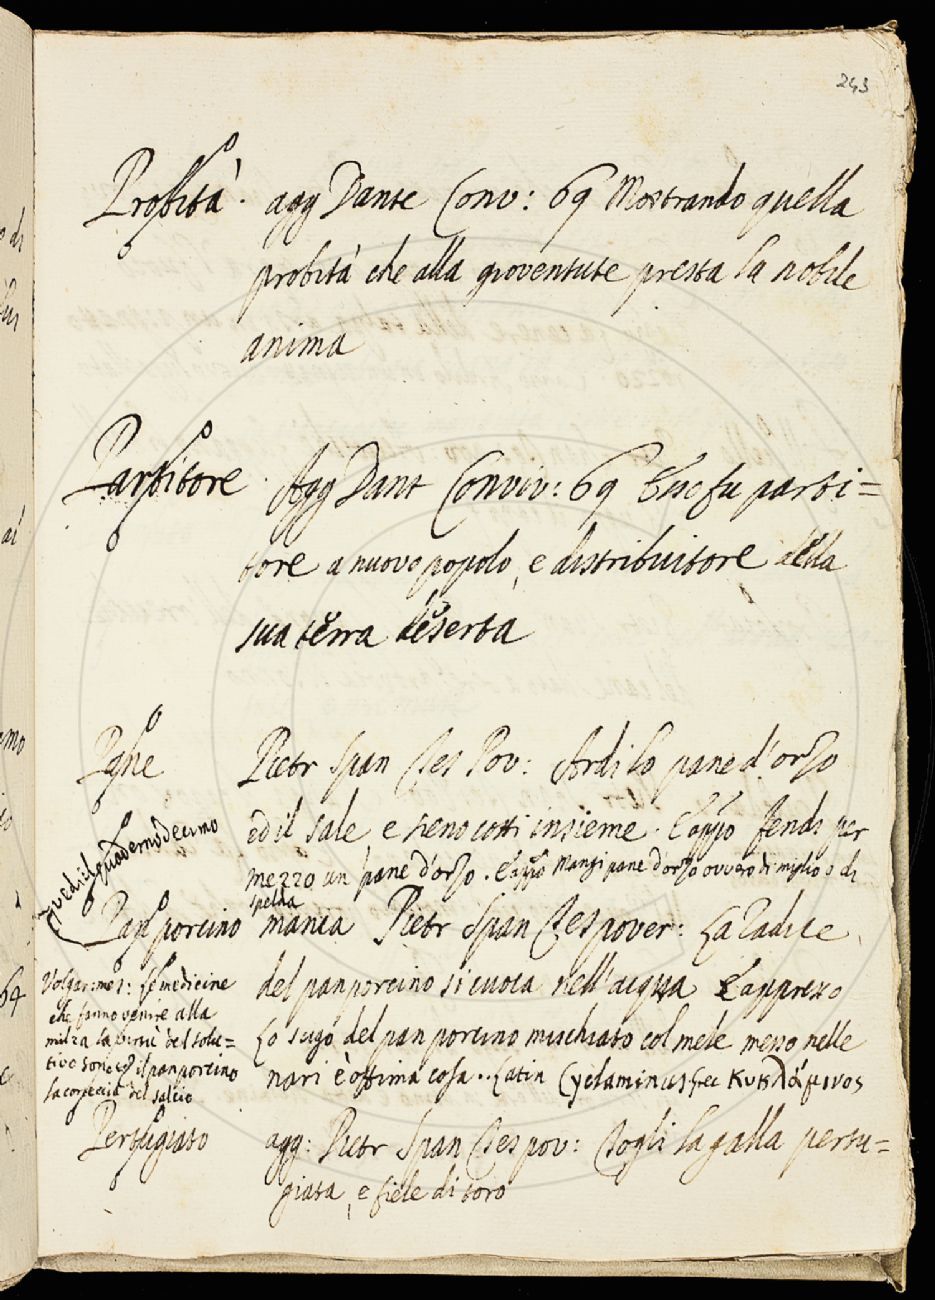 243
Probità. agg Dante Conv: 69 Mostrando quella
probità che alla gioventute presta la nobile
anima
Partitore. Agg Dant Conviv: 69 Che fu parti=
tore a nuovo popolo, e distribuitore della
sua terra deserta
Pane Pietr Span Tes Pov: Ardi lo pane d'orzo
ed il sale e sieno cotti insieme. E appo fendi per
mezzo un pane d'orzo. E appo Mangi pane d'orzo ovvero di miglio o di
spelda
vedi il quaderno decimo
Pan porcino mania Pietr Span Tes pover: La Radice
del pan porcino si cuoca nell'acqua E appresso
Lo sugo del pan porcino mischiato col mele messo nelle
nari è ottima cosa. Latin Cyclaminus Grec Κυκλάμινος
Volgar: mes: Le medicine
che fanno venire alla
milza la virtù del solu=
tivo sono il pan porcino
la corteccia del salcio
Pertugiato agg: Pietr Span Tes pov: Togli la galla pertu=
giata, e fiele di toro